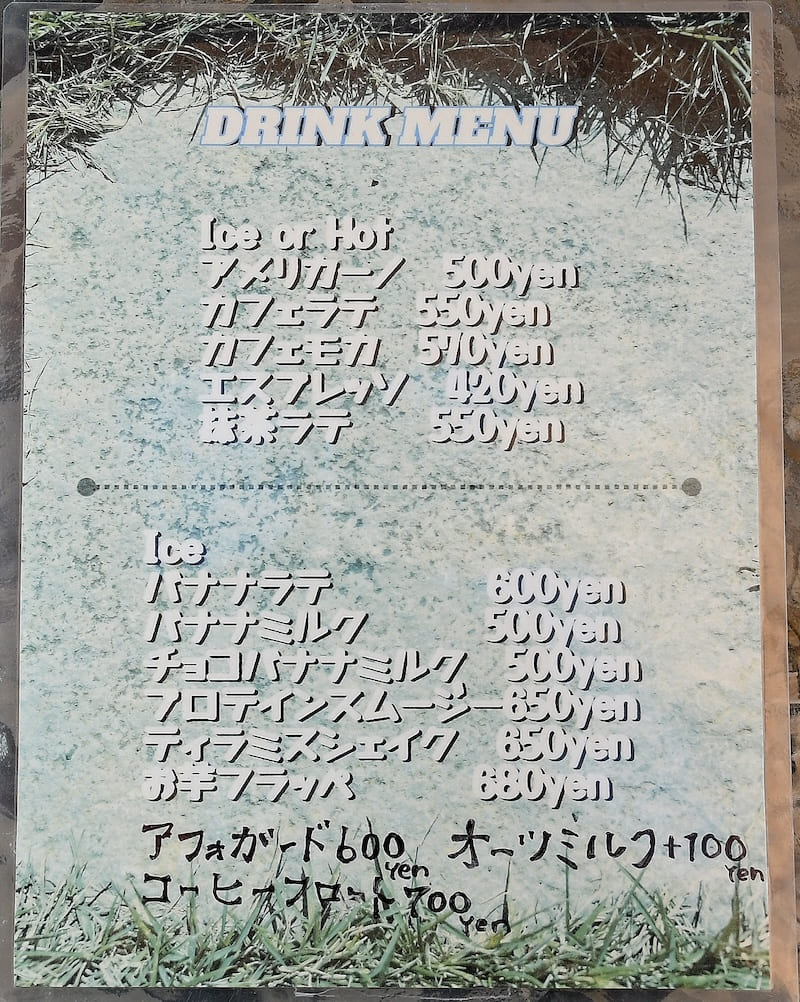 DRINK MENU
Ice or Hot
アメリカーノ 500yen
カフェラテ 550yen
カフェモカ 570yen
エスプレッソ 420yen
抹茶ラテ 550yen
Ice
バナナラテ 600yen
バナナミルク 500yen
チョコバナナミルク 500yen
プロテインスムージー650yen
ティラミスシェイク 650yen
お芋フラッペ 680yen
アフォガード600yen オーツミルク+100yen
コーヒーフロート700yen